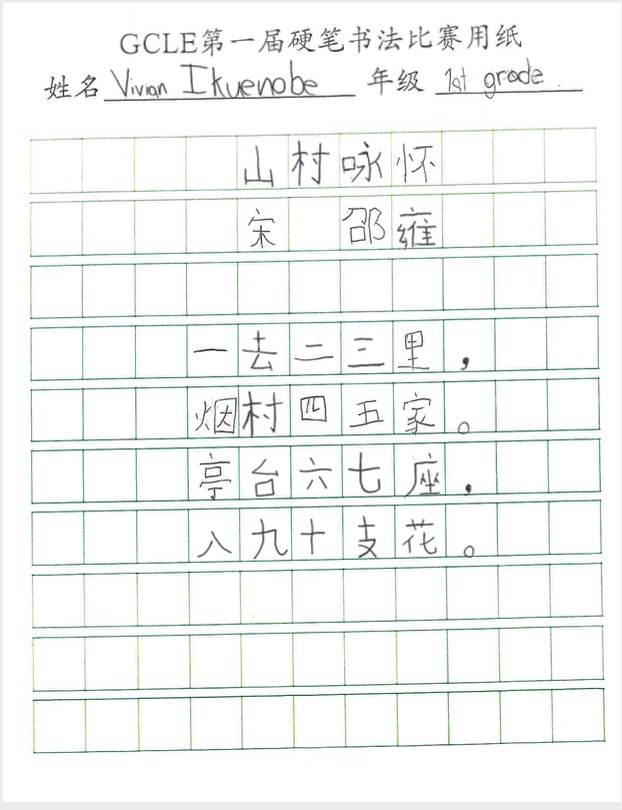 GCLE第一届硬笔书法比赛用纸
姓名 Vivian Ikuenobe 年级 1st grade
山村咏怀
宋 邵雍
一去二三里，
烟村四五家。
亭台六七座，
八九十支花。